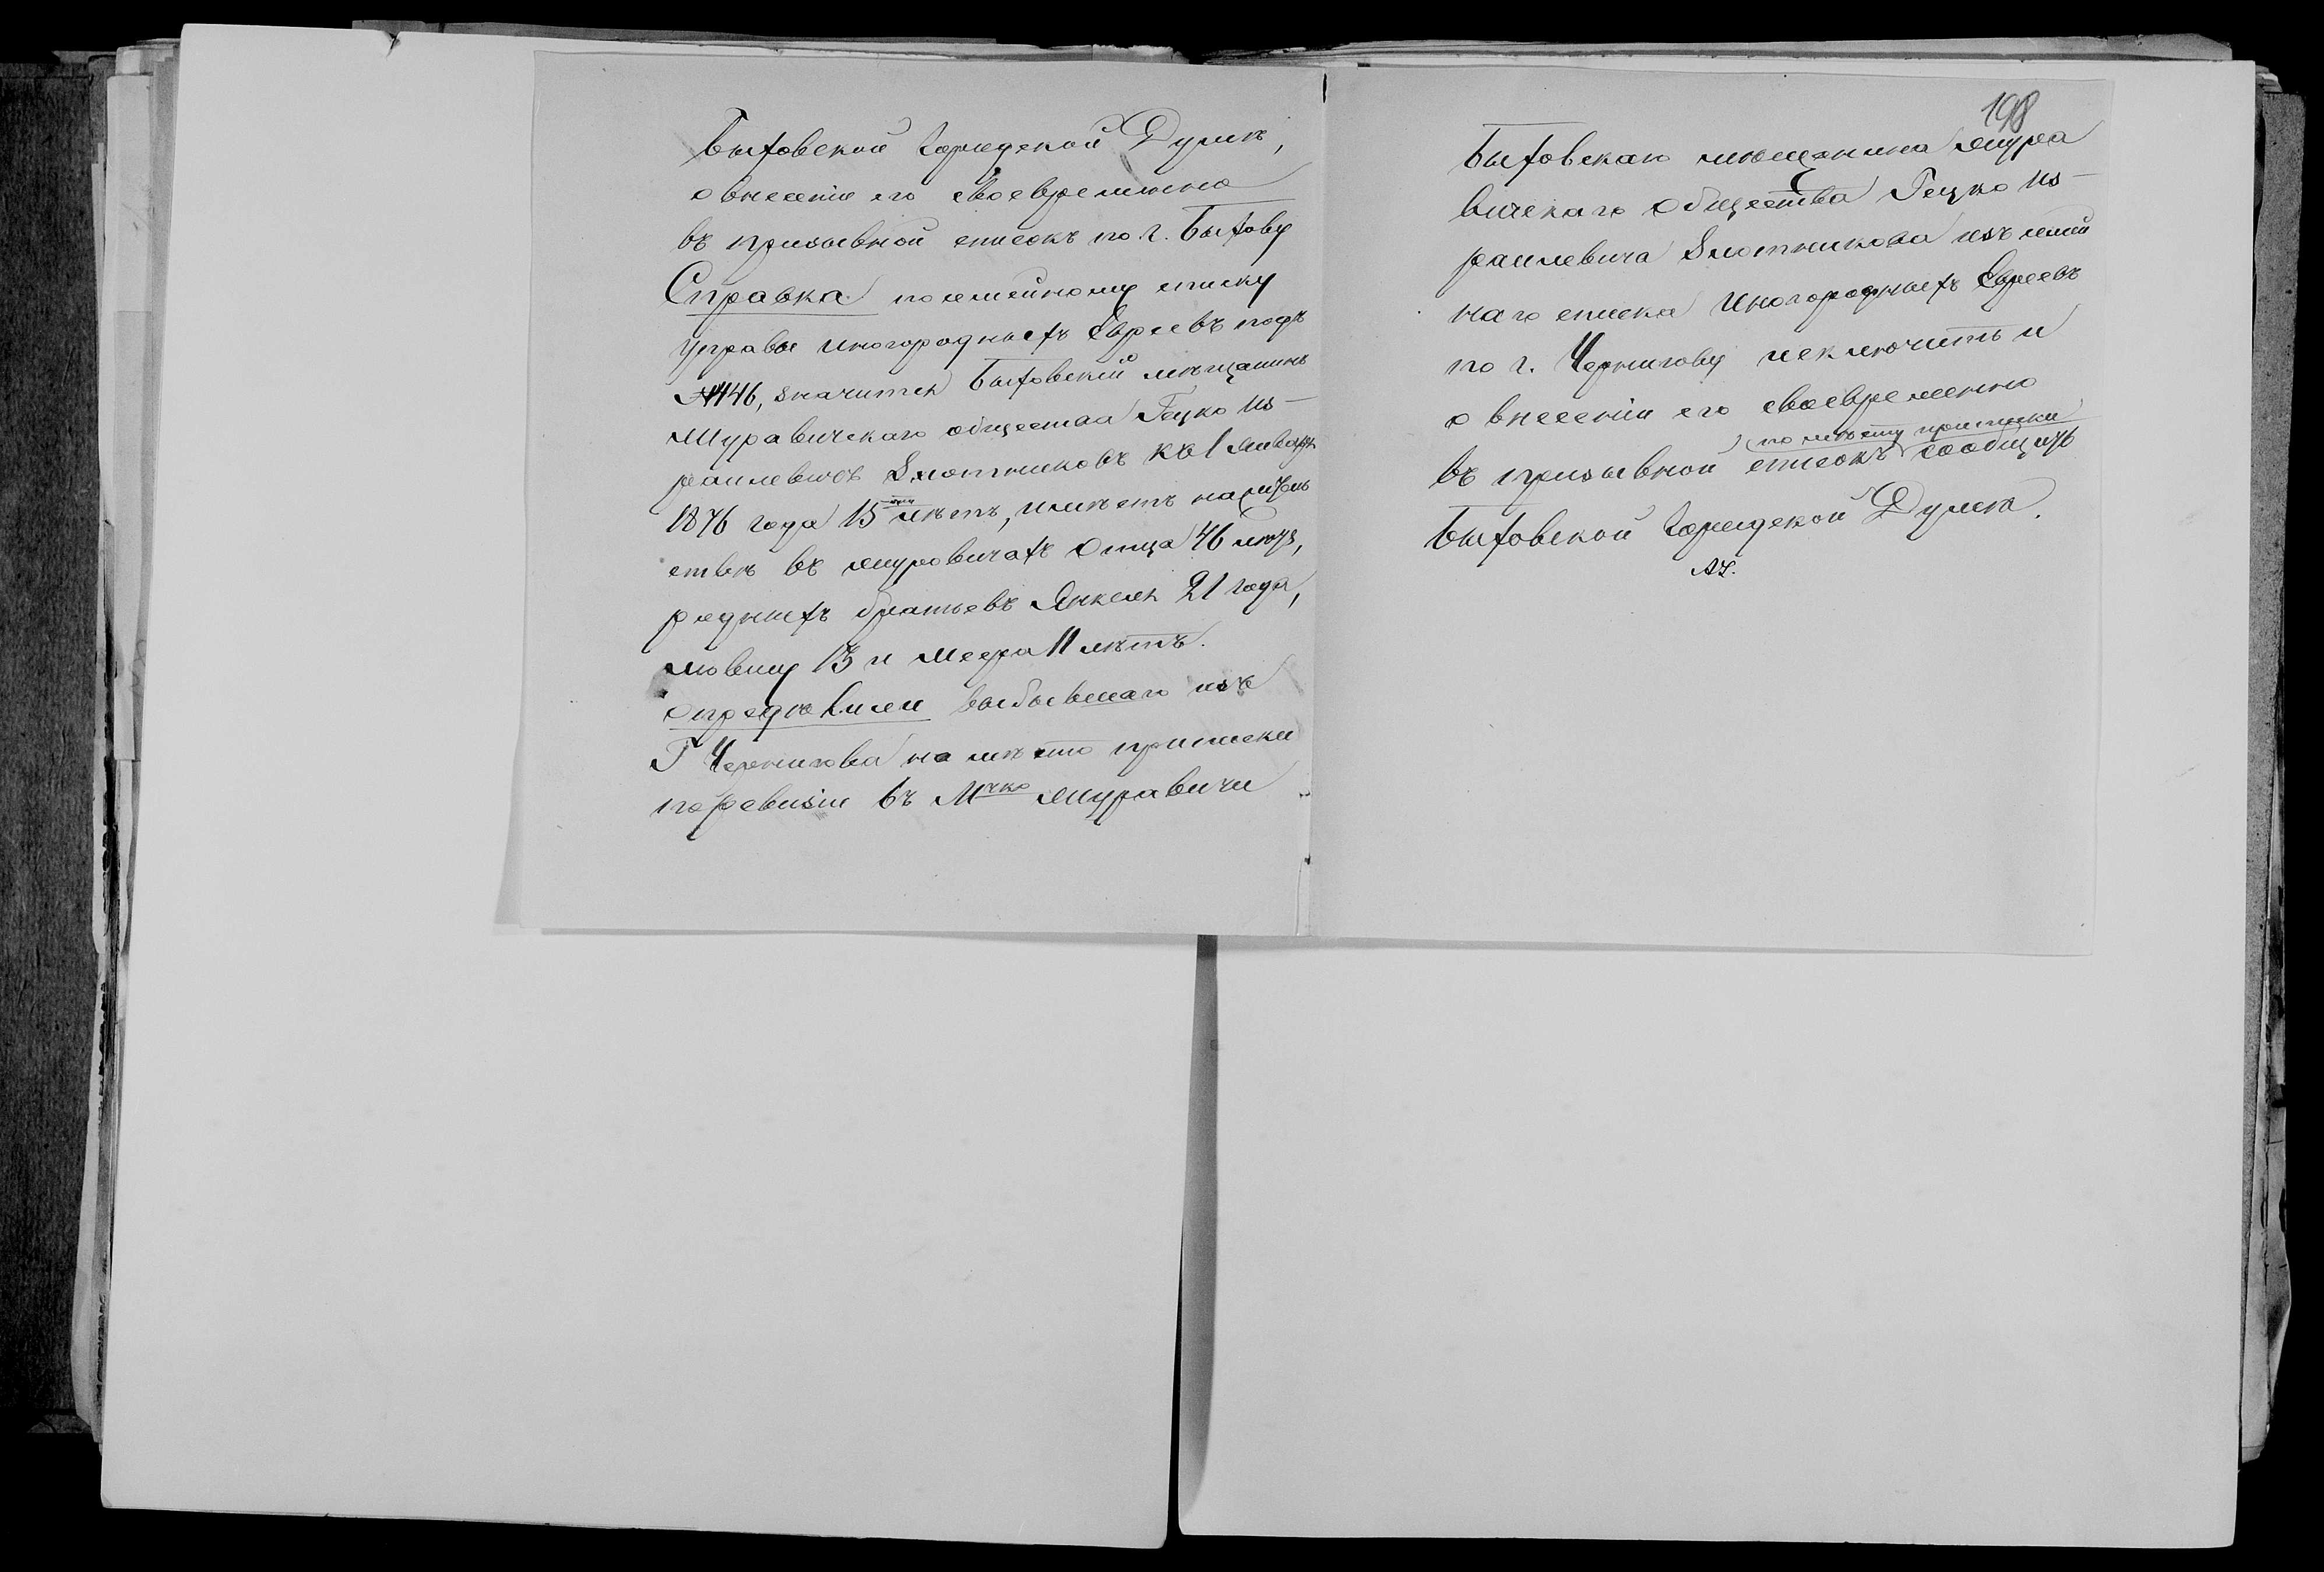 Быховской Городской Думѣ,
о внесеніи его своевременно
въ призывной списокъ по г. Быхову
Справка по семейному списку
Управы иногородныхъ Евреевъ подъ
№ 446, значится Быховскій мѣщанинъ
Муравичскаго общества Гецко Из-
раилевичъ Злотниковъ къ 1 Января
1876 года 15 лѣтъ, имѣетъ на житель
ствѣ въ Муровичахъ Отца 46 лѣтъ,
родныхъ братьевъ Янкеля 21 года,
Мовшу 13 и Меера 11 лѣтъ.
Опредѣлили выбывшаго изъ
Г Чернигова на мѣсто приписки
по ревизіи въ Мчко Муравичи
198
Быховскаго мѣщанина Мура
вичскаго Общества Гецко Из-
раилевича Злотникова изъ семей
наго списка Иногородныхъ Евреевъ
по г. Чернигову исключить и
о внесеніи его своевременно
по мѣсту приписки
въ призывной списокъ сообщить
Быховской Городской Думѣ.